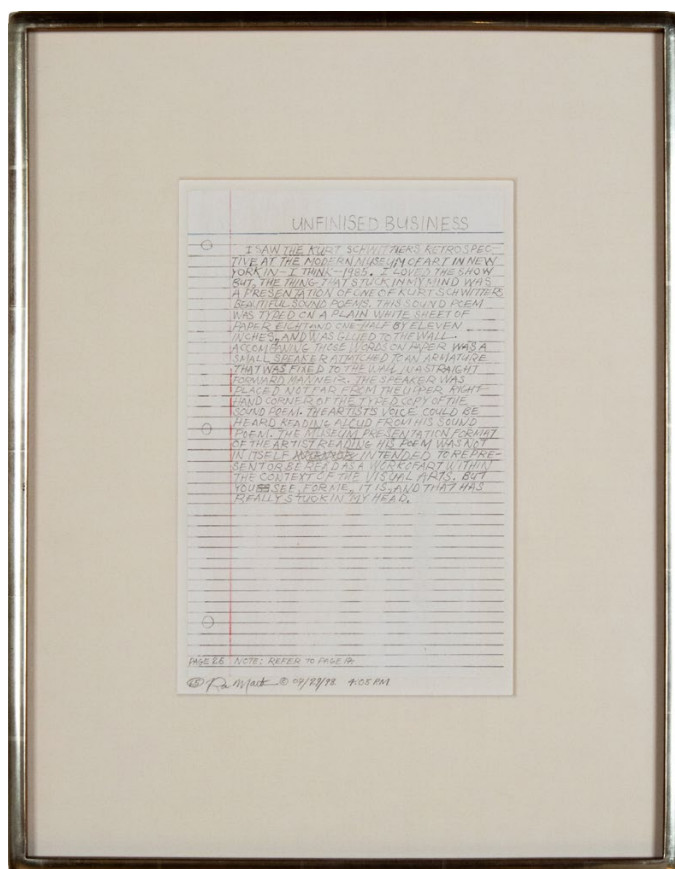 UNFINISED BUSINESS
I SAW THE KURT SCHWITTIERS RETROSPEC-
TIVE AT THE MODERN MUSEUM OF ART IN NEW
YORK IN - I THINK - 1985. I LOVED THE SHOW
BUT, THE THING THAT STUCK IN MY MIND WAS
A PRESENTATION OF ONE OF KURT SCHWITTERS
BEAUTIFUL SOUND POEMS. THIS SOUND POEM
WAS TYPED ON A PLAIN WHITE SHEET OF
PAPER EIGHT AND ONE-HALF BY ELEVEN
INCHES, AND WAS GLUED TO THE WALL.
ACCOMPANING THOSE WORDS ON PAPER WAS A
SMALL SPEAKER ATTATCHED TO AN ARMATURE
THAT WAS FIXED TO THE WALL IN A STRAIGHT
FORWARD MANNER. THE SPEAKER WAS
PLACED NOT FAR FROM THE UPPER RIGHT-
HAND CORNER OF THE TYPED COPY OF THE
SOUND POEM. THE ARTIST'S VOICE COULD BE
HEARD READING ALOUD FROM HIS SOUND
POEM. THE MUSEUM PRESENTATION FORMAT
OF THE ARTIST READING HIS POEM WAS NOT
IN ITSELF INTENDED TO REPRE-
SENT OR BE READ AS A WORK OF ART WITHIN
THE CONTEXT OF THE VISUAL ARTS. BUT
YOU SEE, FOR ME, IT IS, AND THAT HAS
REALLY STUCK IN MY HEAD.
PAGE 28 NOTE: REFER TO PAGE
© 09/27/98 4:05 PM